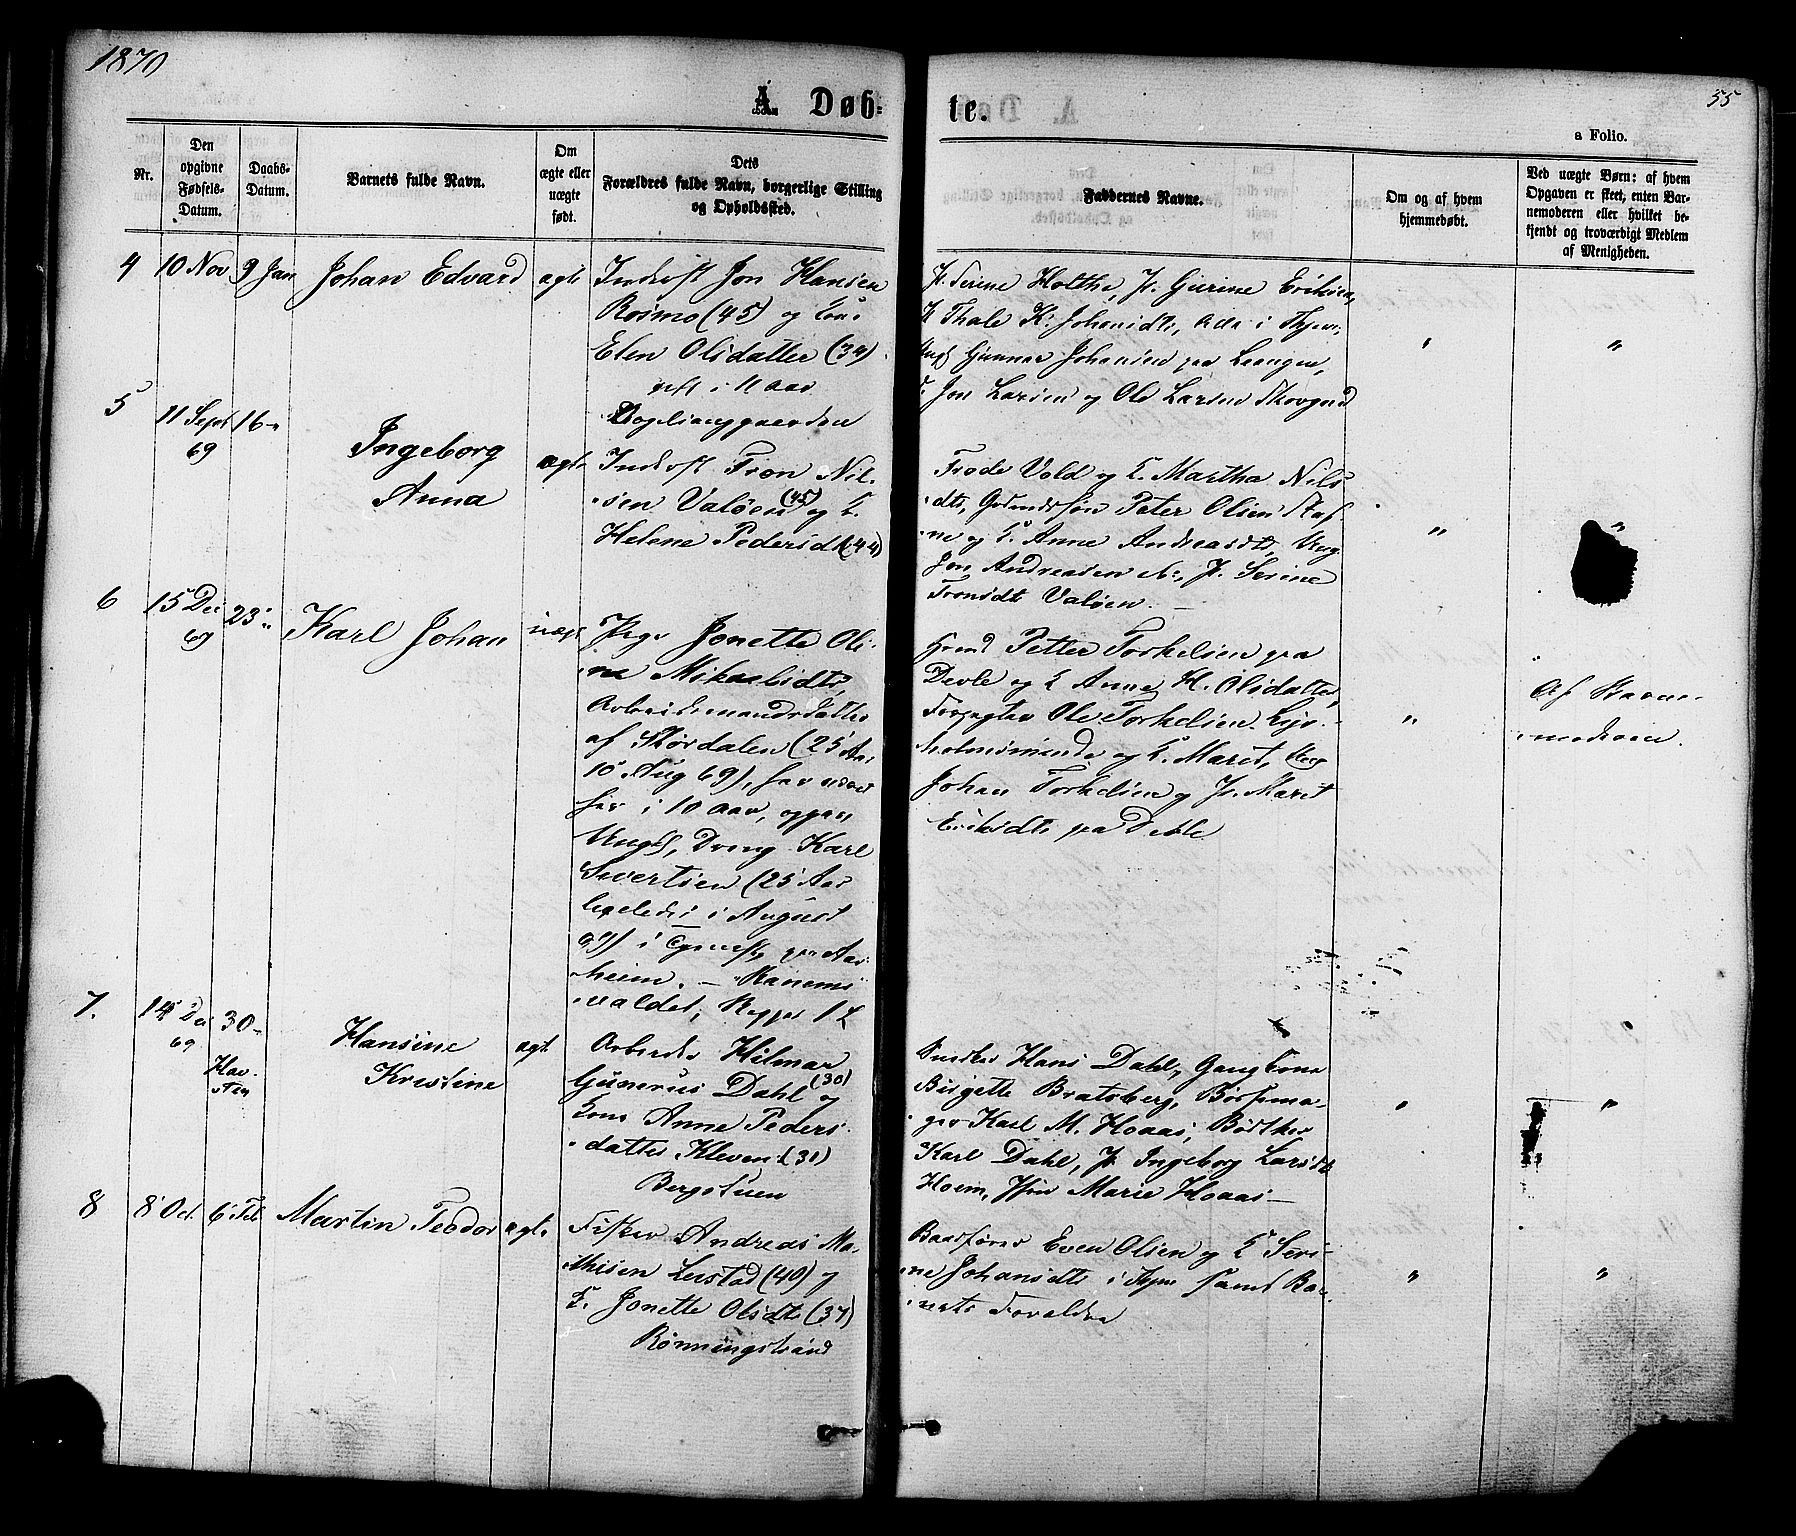 1870
55
A. Døbte.
a Folio.
Nr.
Den opgivne Fødsels-Datum.
Daabs-Datum.
Barnets fulde Navn.
Om ægte eller uægte født.
Dets Forældres fulde Navn, borgerlige Stilling og Opholdssted.
Faddernes Navne.
Om og af hvem hjemmedøbt.
Ved uægte Børn: af hvem Opgaven er skeet, enten Barnemoderen eller hvilket bekjendt og troværdigt Medlem af Menigheden.
4 10 Nov 9 Jan Johan Edvard ægte
Inderst Jon Hansen
Rosmo (45) og Kone
Elen Olsdatter (34)
gift i 11 Aar
P. Serine Holthe, P. Gurine Eriksen,
K Thale K. Johansdt, Ade i Thjem,
Ungk Gunnar Johansen paa Leangen,
Jon Larsen og Ole Larsen Skovgrd
" "
5 11 Sept 69 16-
Ingeborg
Anna
ægte
Inderst Tron Nil-
sen Valøen (45) og K.
Helene Pedersdt (44)
Frode Vold og K. Martha Nils
dt, Peter Olsen Staf-
ne og K. Anne Andreasdt, Ung
Jon Andreasen P. Serine
Tronsdt Valøen. —
" "
6 15 Dec 69 23-
Karl Johan
uægt
Pige Jonette Oli-
ne Mikaelsdt,
Arbeidsmandsdatter
af Størdalen (25 Aar
10 Aug 69), har været
her i 10 Aar, opgav
Ungk, Dreng Karl
Sivertsen (25 Aar
ligeledes i August
69) i Tjeneste paa Aar-
heim. —
valdet,
Petter Torkelsen paa
Devle og K Anne H. Olsdatter
Ole Torkelsen
holmsminde og K. Marit, Ung
Johan Torkelsen og P. Marit
Eriksdt paa Devle
"
Af Barne-
moderen.
7. 14 Dec 69 30-
Hav-
stein
Hansine
Kristine
ægt
Arbeider Hilmar
Gunerius Dahl (30) og
Kone Anne Peders-
datter Kleven (31)
Bergstuen
Snedker Hans Dahl, Gangkone
Birgette Bratsberg, Børsema-
ger Karl M. Hoaas, Bødker
Karl Dahl, P. Ingeborg Larsdt
Hoem, Marie Hoaas —
" "
8 8 Oct. 6 Feb Martin Teodor ægte
Fisker Andreas Ma-
thisen Leistad (40) og
K. Jonette Olsdt (37)
Rønningstrand
Baadfører Even Olsen og K Seri-
ne Johansdt i samt Bar-
nets Forældre
" "